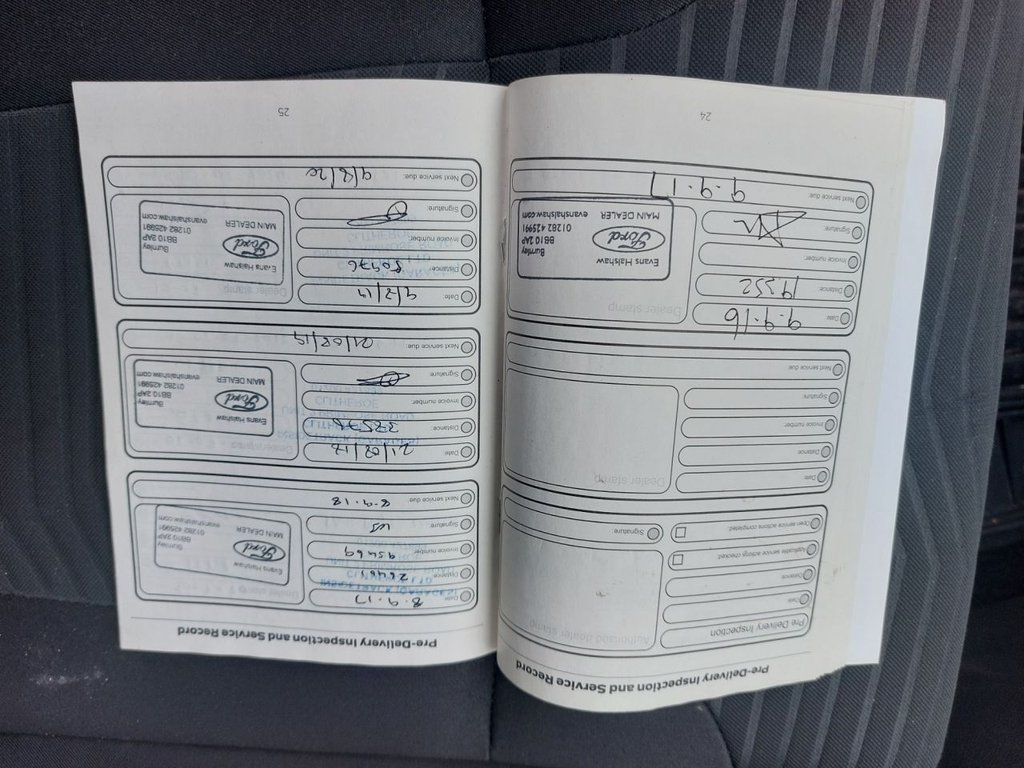 Pre-Delivery Inspection and Service Record
Pre Delivery Inspection
Date:
Distance:
Applicable service actions checked:
Open service actions completed:
Authorised dealer stamp
Signature:
Date:
Distance:
Invoice number:
Signature:
Next service due:
Dealer stamp
Date: 9.9.16
Distance:
Invoice number:
Signature:
Next service due: 9.9.17
Dealer stamp
Evans Halshaw
Ford
Burnley
BB10 2AP
01282 425991
MAIN DEALER evanshalshaw.com
24
Pre-Delivery Inspection and Service Record
Date: 8.9.17
Distance:
Invoice number: 95469
Signature:
Next service due: 8.9.18
Dealer stamp
Evans Halshaw
Ford
Burnley
BB10 2AP
01282 425991
MAIN DEALER evanshalshaw.com
Date: 21/08/18
Distance: 37576
Invoice number:
Signature:
Next service due: 21/08/19
Dealer stamp
Evans Halshaw
Ford
Burnley
BB10 2AP
01282 425991
MAIN DEALER evanshalshaw.com
Date:
Distance: 50976
Invoice number:
Signature:
Next service due: 9/8/20
Dealer stamp
Evans Halshaw
Ford
Burnley
BB10 2AP
01282 425991
MAIN DEALER evanshalshaw.com
25